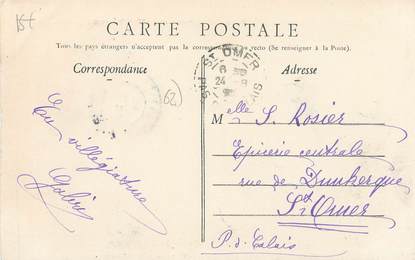 15t
CARTE POSTALE
Tous les pays étrangers n'acceptent pas la correspondance au recto (Se renseigner à la Poste).
Correspondance
Adresse
ST OMER
PAS
CALAIS
24
62)
En villégiature
Melle S. Rosier
Epicerie centrale
rue de Dunkerque
St Omer
P.-d. Calais